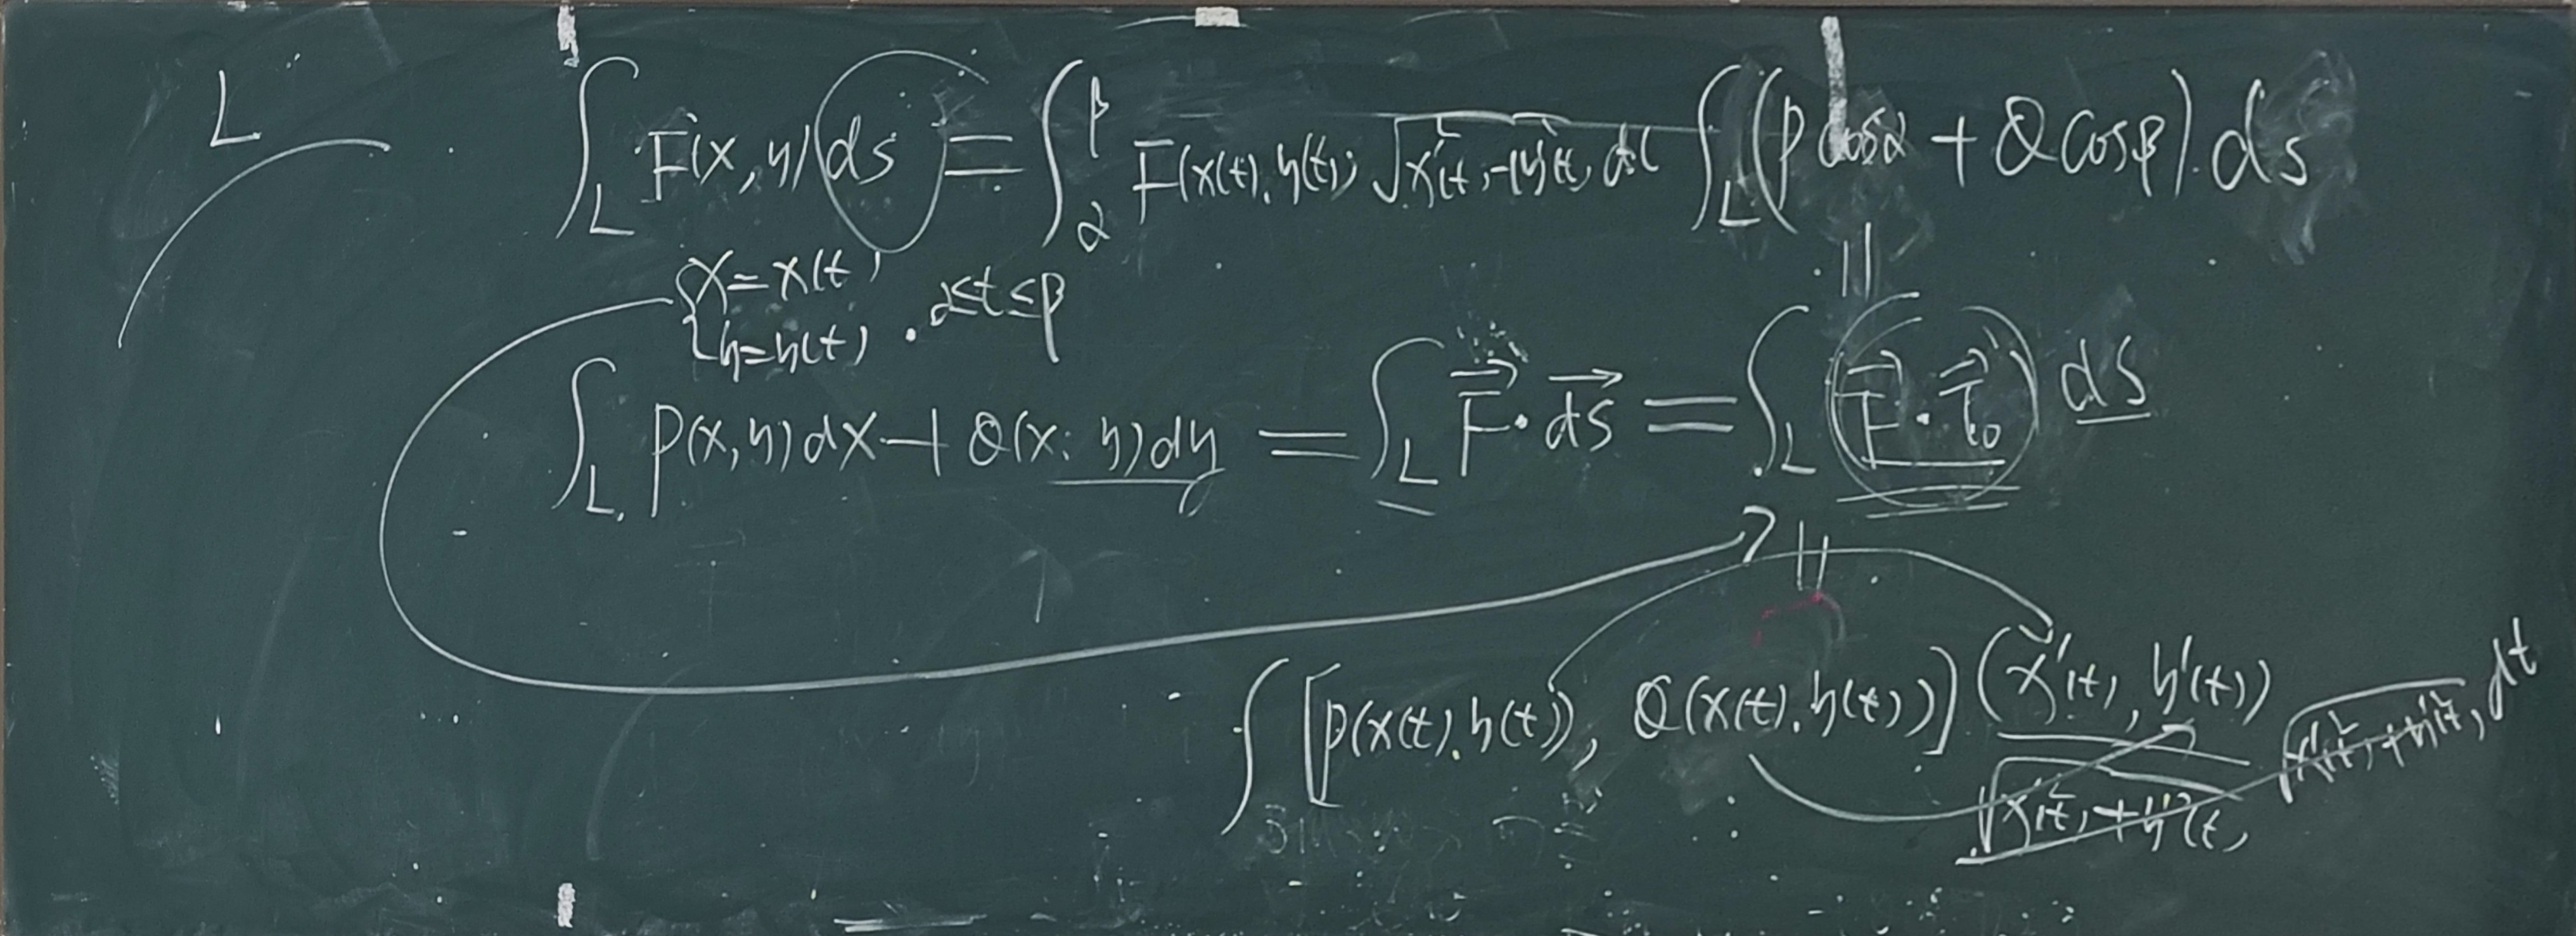 L
∫_L F(x,y)ds = ∫_α^β F(x(t),y(t)) √(x'²(t)+y'²(t)) dt
∫_L (P cosα + Q cosβ) ds
{x=x(t)
y=y(t) . α≤t≤β
||
∫_L P(x,y)dx+Q(x,y)dy = ∫_L F⃗·ds⃗ = ∫_L (F⃗·τ⃗₀) ds
||
∫ [P(x(t),y(t)), Q(x(t),y(t))] (x'(t), y'(t)) / √(x'²(t)+y'²(t)) √(x'²(t)+y'²(t)) dt